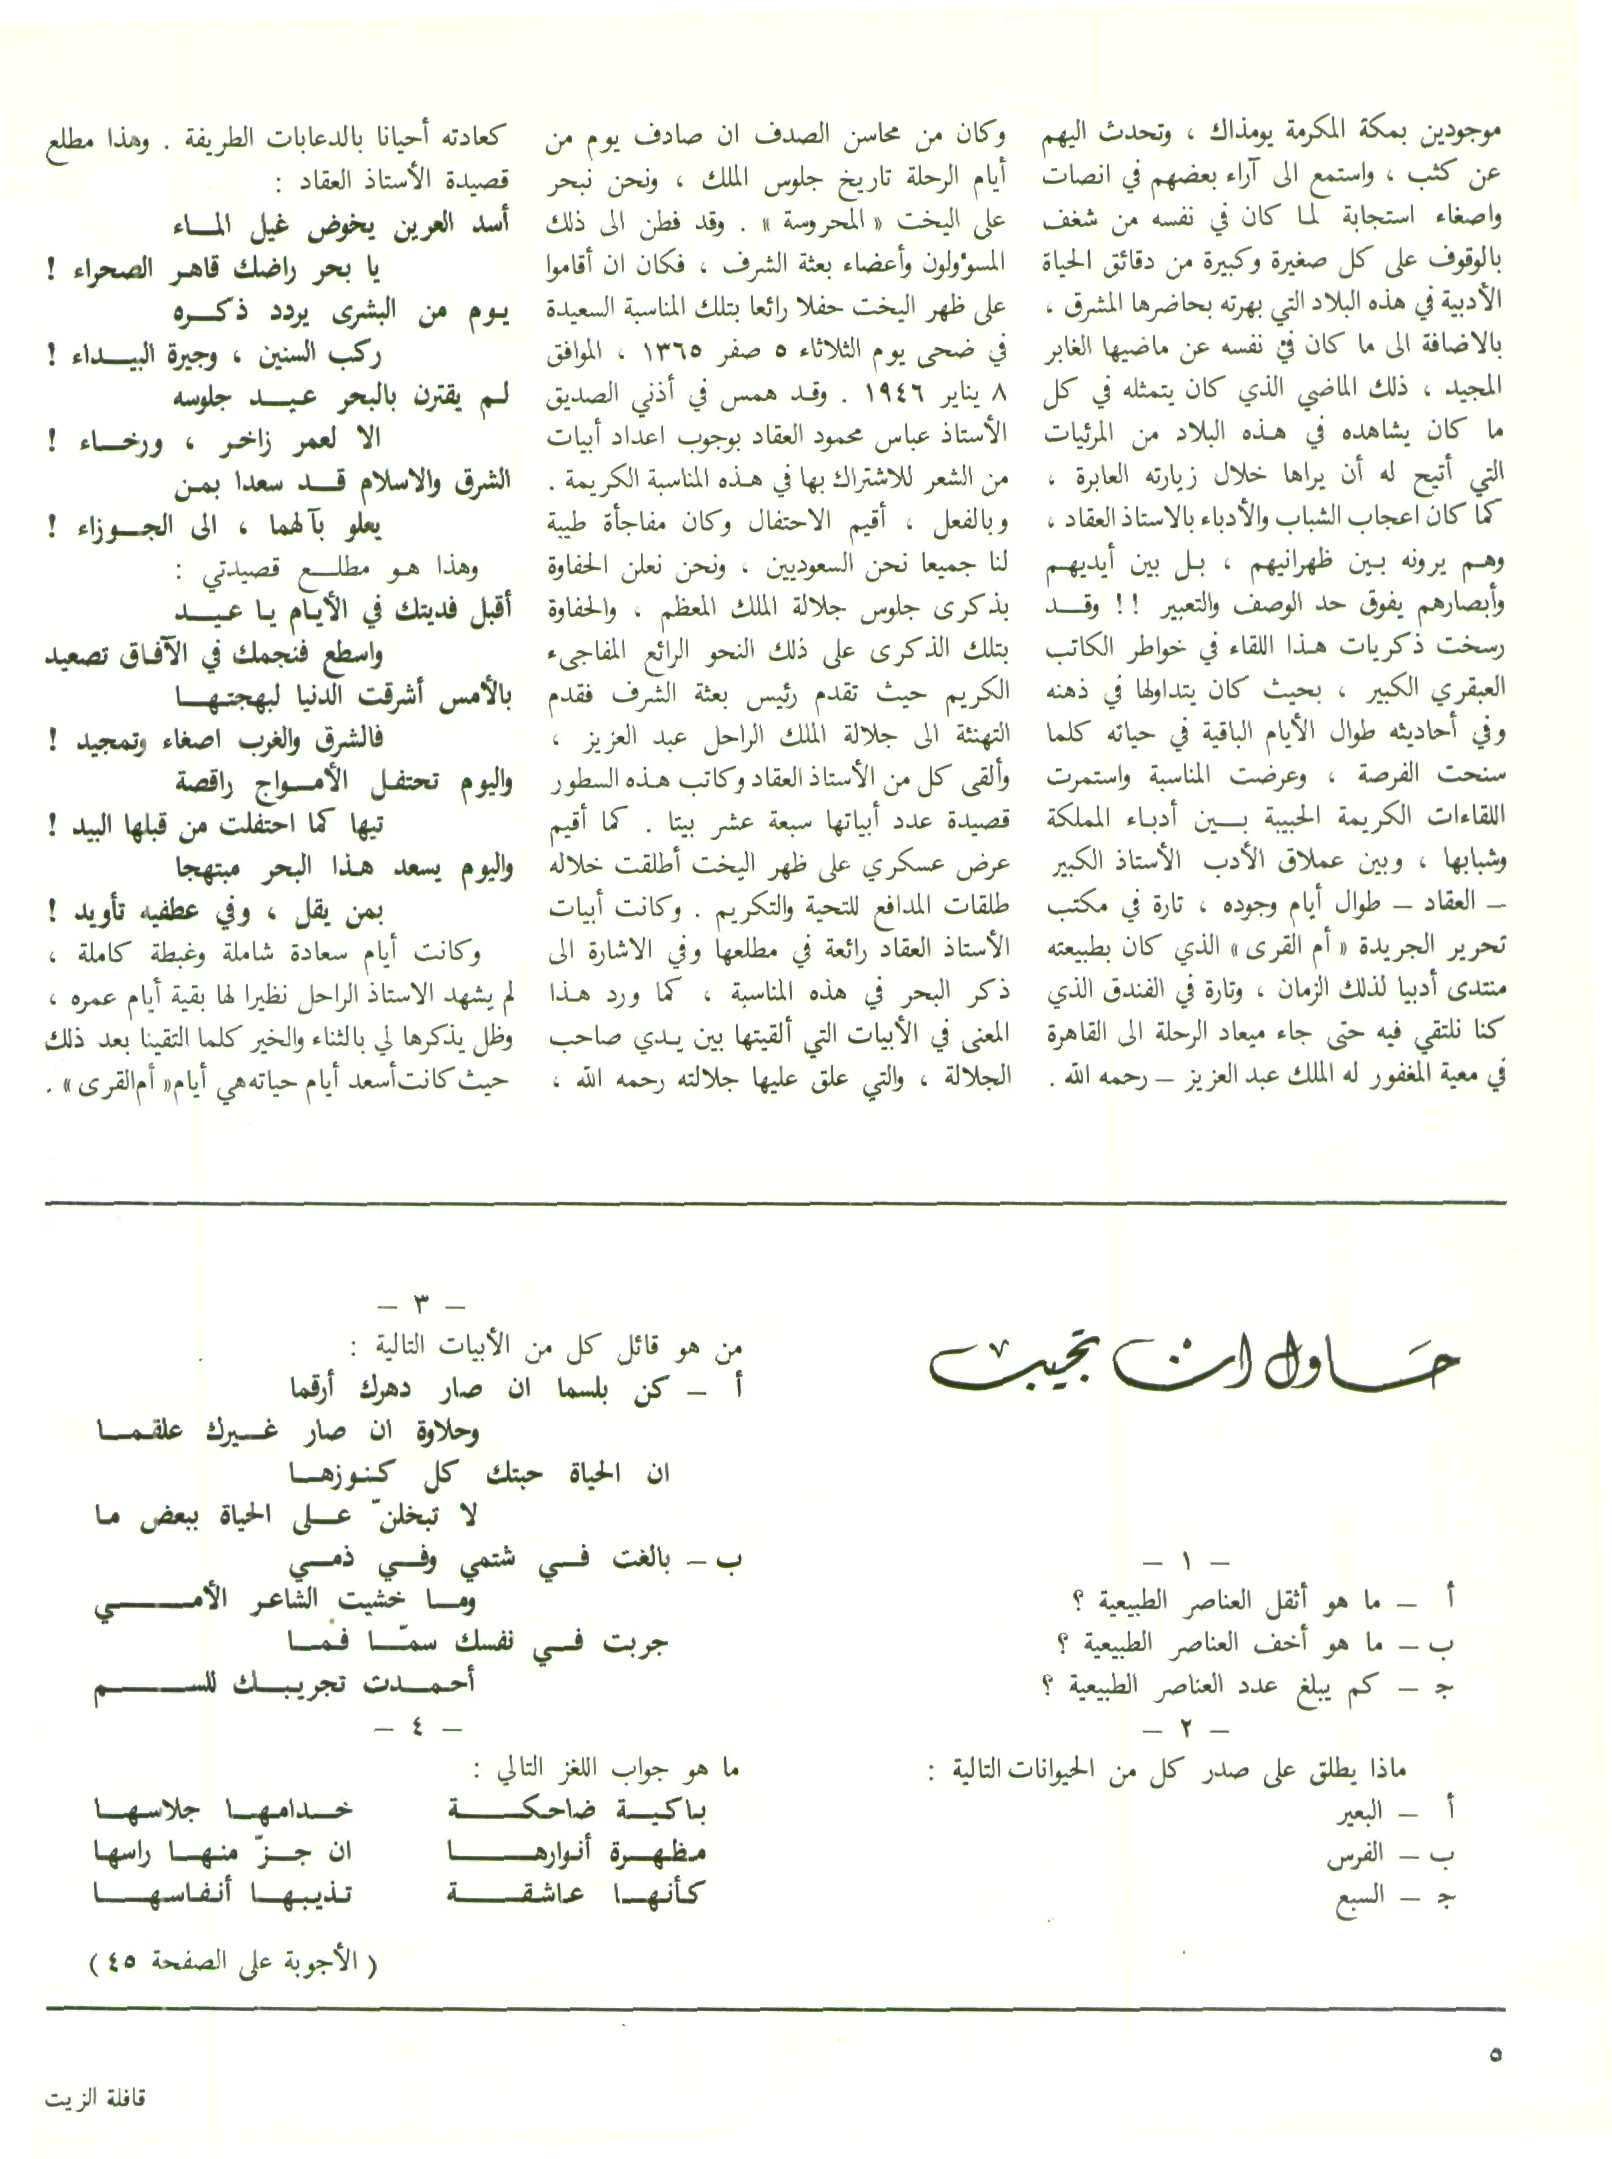 موجودين بمكة المكرمة يومذاك ، وتحدث اليهم
عن كثب ، واستمع الى آراء بعضهم في انصات
واصغاء استجابة لما كان في نفسه من شغف
بالوقوف على كل صغيرة وكبيرة من دقائق الحياة
الأدبية في هذه البلاد التي بهرته بحاضرها المشرق ،
بالاضافة الى ما كان في نفسه عن ماضيها الغابر
المجيد ، ذلك الماضي الذي كان يتمثله في كل
ما كان يشاهده في هذه البلاد من المرئيات
التي أتيح له أن يراها خلال زيارته العابرة ،
كما كان اعجاب الشباب والأدباء بالاستاذ العقاد ،
وهم يرونه بين ظهرانيهم ، بل بين أيديهم
وأبصارهم يفوق حد الوصف والتعبير !! وقد
رسخت ذكريات هذا اللقاء في خواطر الكاتب
العبقري الكبير ، بحيث كان يتداولها في ذهنه
وفي أحاديثه طوال الأيام الباقية في حياته كلما
سنحت الفرصة ، وعرضت المناسبة واستمرت
اللقاءات الكريمة الحبيبة بين أدباء المملكة
وشبابها ، وبين عملاق الأدب الأستاذ الكبير
– العقاد – طوال أيام وجوده ، تارة في مكتب
تحرير الجريدة « أم القرى » الذي كان بطبيعته
منتدى أدبيا لذلك الزمان ، وتارة في الفندق الذي
كنا نلتقي فيه حتى جاء ميعاد الرحلة الى القاهرة
في معية المغفور له الملك عبد العزيز – رحمه الله .
وكان من محاسن الصدف ان صادف يوم من
أيام الرحلة تاريخ جلوس الملك ، ونحن نبحر
على اليخت « المحروسة » . وقد فطن الى ذلك
المسؤولون وأعضاء بعثة الشرف ، فكان ان أقاموا
على ظهر اليخت حفلا رائعا بتلك المناسبة السعيدة
في ضحى يوم الثلاثاء ٥ صفر ١٣٦٥ ، الموافق
٨ يناير ١٩٤٦ . وقد همس في أذني الصديق
الأستاذ عباس محمود العقاد بوجوب اعداد أبيات
من الشعر للاشتراك بها في هذه المناسبة الكريمة .
وبالفعل ، أقيم الاحتفال وكان مفاجأة طيبة
لنا جميعا نحن السعوديين ، ونحن نعلن الحفاوة
بذكرى جلوس جلالة الملك المعظم ، والحفاوة
بتلك الذكرى على ذلك النحو الرائع المفاجىء
الكريم حيث تقدم رئيس بعثة الشرف فقدم
التهنئة الى جلالة الملك الراحل عبد العزيز ،
وألقى كل من الأستاذ العقاد وكاتب هذه السطور
قصيدة عدد أبياتها سبعة عشر بيتا . كما أقيم
عرض عسكري على ظهر اليخت أطلقت خلاله
طلقات المدافع للتحية والتكريم . وكانت أبيات
الأستاذ العقاد رائعة في مطلعها وفي الاشارة الى
ذكر البحر في هذه المناسبة ، كما ورد هذا
المعنى في الأبيات التي ألقيتها بين يدي صاحب
الجلالة ، والتي علق عليها جلالته رحمه الله ،
كعادته أحيانا بالدعابات الطريفة . وهذا مطلع
قصيدة الأستاذ العقاد :
أسد العرين يخوض غيل الماء
يا بحر راضك قاهر الصحراء !
يوم من البشرى يردد ذكره
ركب السنين ، وجيرة البيداء !
لم يقترن بالبحر عيد جلوسه
الا لعمر زاخر ، ورخاء !
الشرق والاسلام قد سعدا بمن
يعلو بآلهما ، الى الجوزاء !
وهذا هو مطلع قصيدتي :
أقبل فديتك في الأيام يا عيد
واسطع فنجمك في الآفاق تصعيد
بالأمس أشرقت الدنيا لبهجتها
فالشرق والغرب اصغاء وتمجيد !
واليوم تحتفل الأمواج راقصة
تيها كما احتفلت من قبلها البيد !
واليوم يسعد هذا البحر مبتهجا
بمن يقل ، وفي عطفيه تأويد !
وكانت أيام سعادة شاملة وغبطة كاملة ،
لم يشهد الاستاذ الراحل نظيرا لها بقية أيام عمره ،
وظل يذكرها لي بالثناء والخير كلما التقينا بعد ذلك
حيث كانت أسعد أيام حياته هي أيام « أم القرى » .
حاول ان تجيب
– ١ –
أ – ما هو أثقل العناصر الطبيعية ؟
ب – ما هو أخف العناصر الطبيعية ؟
ج – كم يبلغ عدد العناصر الطبيعية ؟
– ٢ –
ماذا يطلق على صدر كل من الحيوانات التالية :
أ – البعير
ب – الفرس
ج – السبع
– ٣ –
من هو قائل كل من الأبيات التالية :
أ – كن بلسما ان صار دهرك أرقما
وحلاوة ان صار غيرك علقما
ان الحياة حبتك كل كنوزها
لا تبخلنّ على الحياة ببعض ما
ب – بالغت في شتمي وفي ذمي
وما خشيت الشاعر الأمي
جربت في نفسك سمّا فما
أحمدت تجريبك للسم
– ٤ –
ما هو جواب اللغز التالي :
باكية ضاحكة خدامها جلاسها
مظهرة أنوارها ان جزّ منها راسها
كأنها عاشقة تذيبها أنفاسها
( الأجوبة على الصفحة ٤٥ )
٥
قافلة الزيت